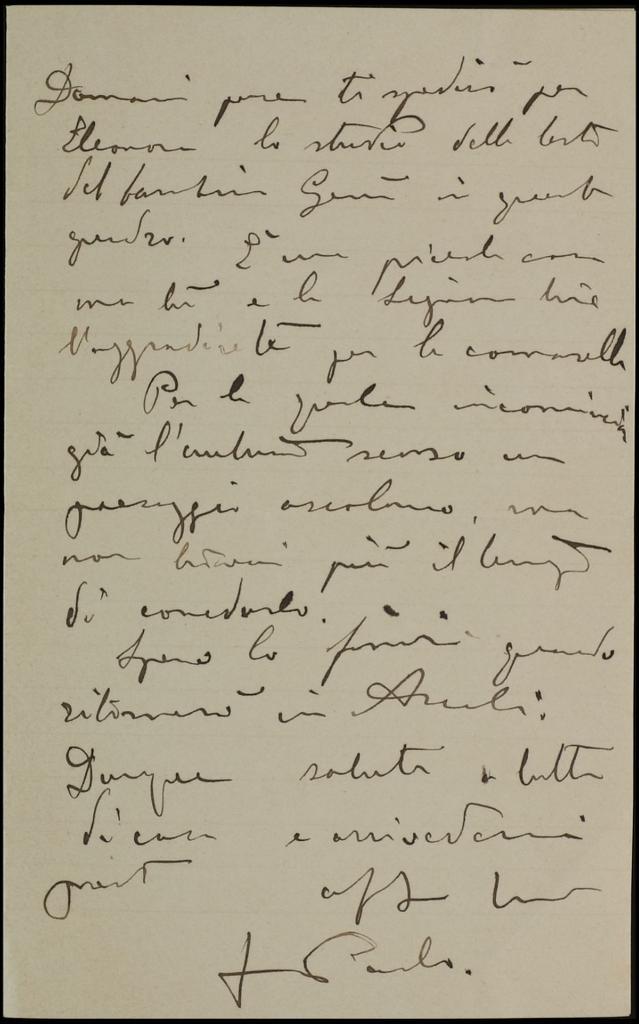 Domani pure ti spedirò per
Eleonora lo studio della testa
del bambino Gesù in questo
quadro. È una piccola cosa
ma tu e la Signora tua
l'aggradirete per la comarella
Per la quale incominciai
già l'autunno scorso un
paesaggio ascolano, ma
non trovai più il tempo
di concluderlo.
Spero lo finirò quando
ritornerò in Ascoli.
Dunque saluta a tutti
di casa e arrivederci
presto aff tuo
Paolo.